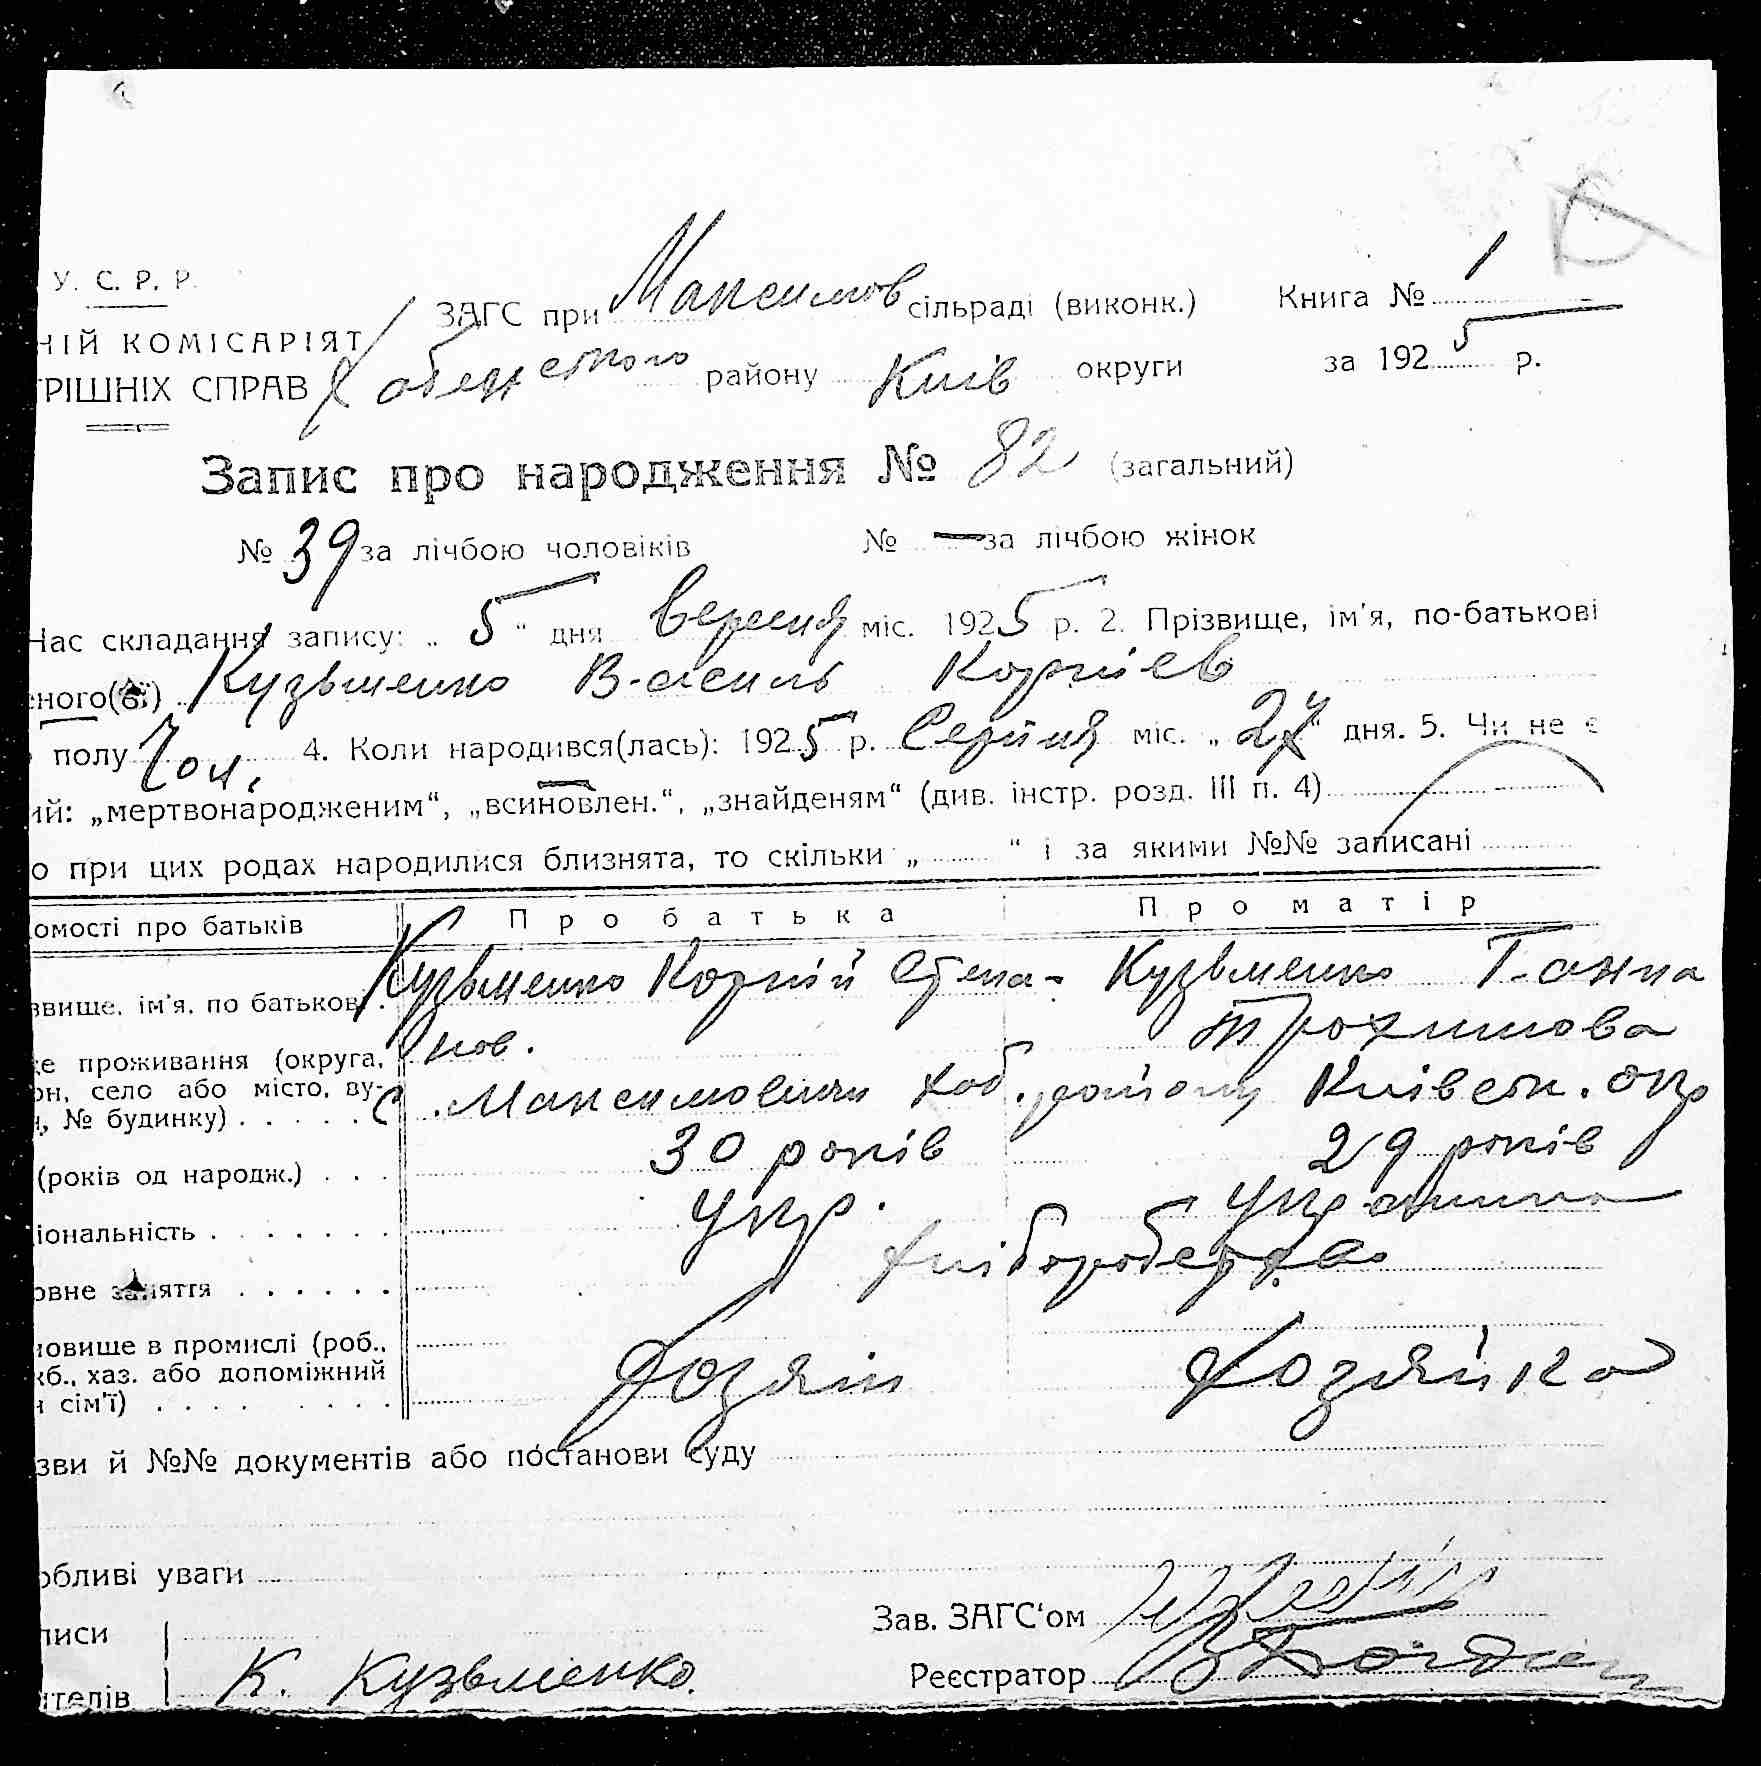 У. С. Р. Р.
ЗАГС при Максимов сільраді (виконк.) Книга № 1
НІЙ КОМІСАРІЯТ
РІШНІХ СПРАВ Хабенського району Київ округи за 1925 р.
Запис про народження № 82 (загальний)
№ 39 за лічбою чоловіків № — за лічбою жінок
Час складання запису: „ 5 “ дня вересня міс. 1925 р. 2. Прізвище, ім'я, по-батькові
еного(ої) Кузьменко Василь Корніев
полу Чол. 4. Коли народився(лась): 1925 р. Серпня міс. „ 27 “ дня. 5. Чи не є
ий: „мертвонародженим“, „всиновлен.“, „знайденям“ (див. інстр. розд. III п. 4)
о при цих родах народилися близнята, то скільки „ “ і за якими №№ записані
омості про батьків Про батька Про матір
звище, ім'я, по батькові Кузьменко Корній Степа- Кузьменко Ганна
нов. Трохимова
е проживання (округа,
он, село або місто, ву- с. Максимовичи Хаб. району Київськ. окр
, № будинку)
(років од народж.) 30 років 29 років
іональність Укр. Украинка
овне заняття Хліборобство
новище в промислі (роб.,
жб., хаз. або допоміжний Хозяін Хозяйка
сім'ї)
зви й №№ документів або постанови суду
обливі уваги
Зав. ЗАГС'ом
писи
Реєстратор
ителів К. Кузьменко.